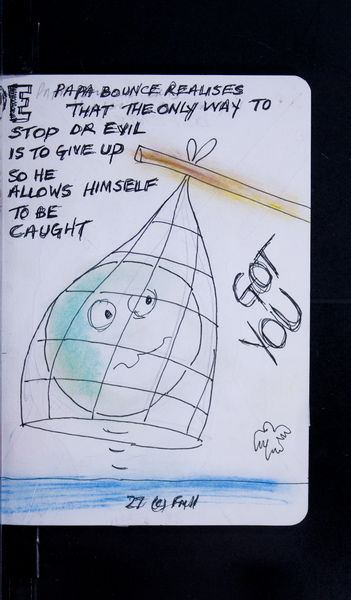 PAPA BOUNCE REALISES
THAT THE ONLY WAY TO
STOP DR EVIL
IS TO GIVE UP
SO HE
ALLOWS HIMSELF
TO BE
CAUGHT
GOT
YOU
27 (c)